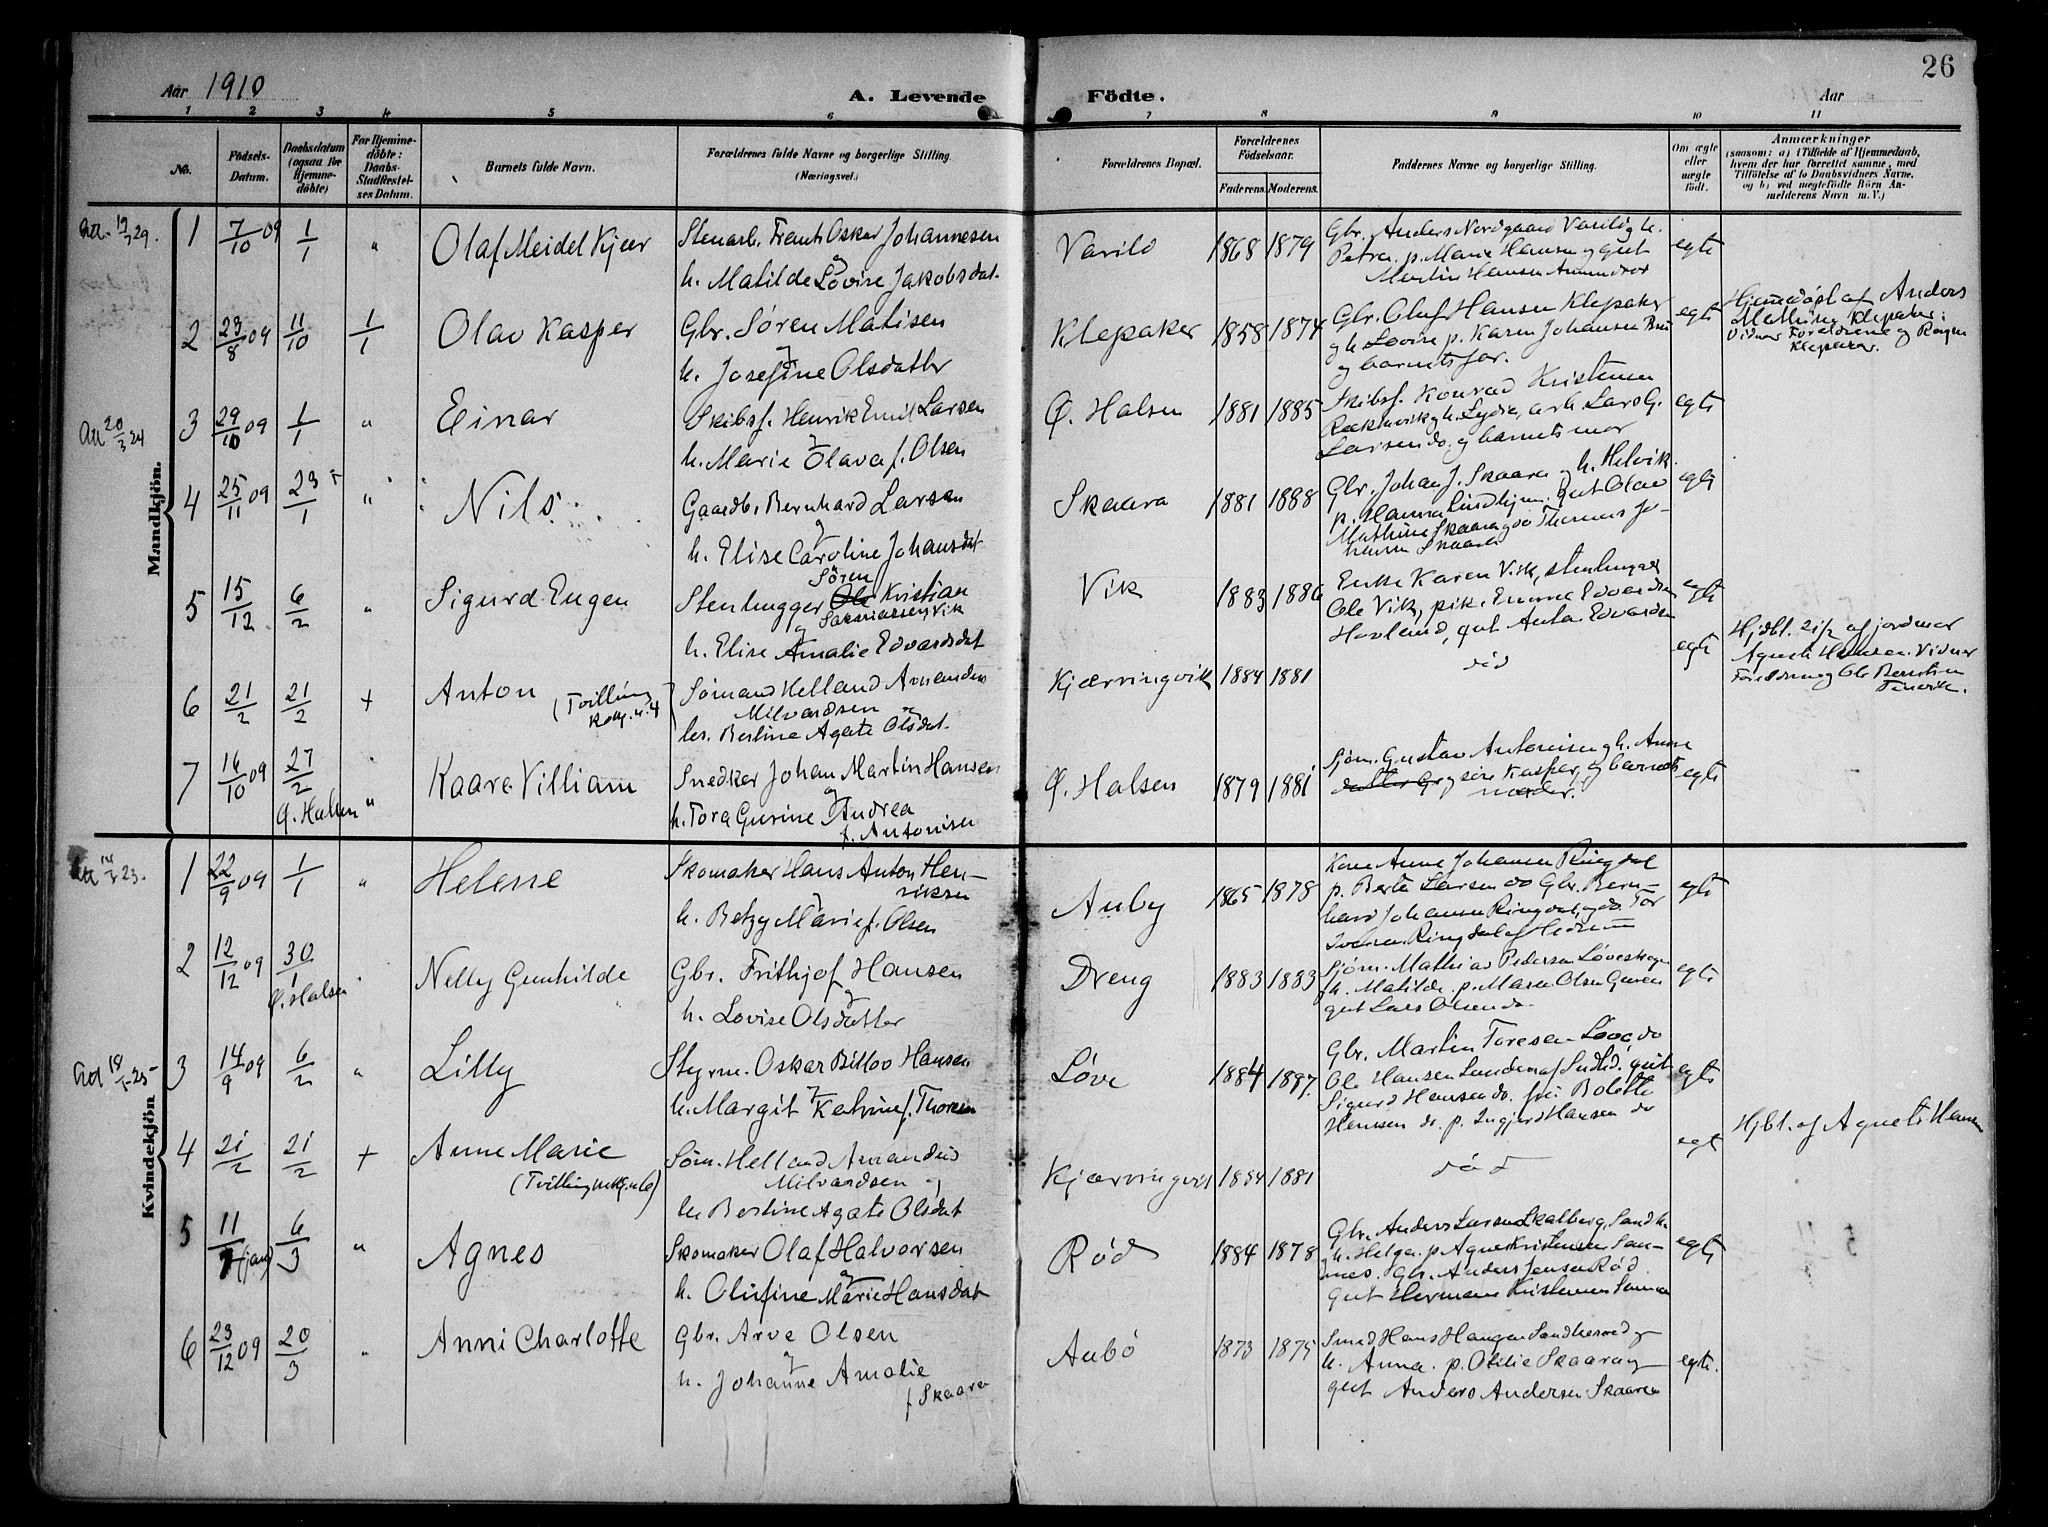 26
Aar 1910
A. Levende Födte.
Aar
1 2 3 4 5 6 7 8 9 10 11
No.
Födsels-Datum.
Daabsdatum (ogsaa for Hjemme-döbte)
For Hjemme-döbte: Daabs-Stadfæstel-ses Datum.
Barnets fulde Navn.
Forældrenes fulde Navne og borgerlige Stilling. (Næringsvei.)
Forældrenes Bopæl.
Forældrenes Födselsaar.
Faderens. Moderens.
Faddernes Navne og borgerlige Stilling.
Om ægte eller uægte födt.
Anmærkninger
(saasom: a) i Tilfælde af Hjemmedaab, hvem der har forrettet samme, med Tilföielse af to Daabsvidners Navne. og b) ved uægtefödte Börn An-melderens Navn m. V.)
Mandkjön.
1 7/10 09 1/1 " Olaf Meidel Kjær
Stenarb. Frants Oskar Johannesen
og
h. Matilde Lovise Jakobsdat.
Varild 1868 1879
Gbr. Anders Nordgaard Varild g h.
Petra. p. Marie Hansen og gut
Martin Hansen
egte
2 23/8 09 11/10 1/1 Olav Kasper
Gbr. Søren Matisen
og
h. Josefine Olsdatter
Klepaker 1858 1874
Gbr. Oluf Hansen Klepaker
g h. Lovise p. Karen Johansen
og barnets far.
egte
Hjemmedøpt af Anders
Mathisen Klepaker.
Vidner Forældrene og
Klepaker.
3 29/10 09 1/1 " Einar
Skibsf. Henrik Emil Larsen
og
h. Marie Olava f. Olsen
Ø. Halsen 1881 1885
Skibsf. Konrad Kristensen
g h. Lydia, Lars G.
Larsen do. og barnets mor
egte
4 25/11 09 23/1 " Nils
Gaardb. Bernhard Larsen
og
h. Elise Caroline Johansdat
Skaara 1881 1888
Gbr. Johan J. Skaara og h. Helvik.
p. Hanna Lindhjem. gut Olav
Mathine Skaara do Thomas Jo-
hansen Skaara
egte
5 15/12 6/2 " Sigurd Eugen
Søren
Stenhugger Ole Kristian
Sakariassen Vik
og
h. Elise Amalie Edvardsdat
Vik 1883 1886
Enke Karen Vik, stenhugger
Ole Vik, pik. Emma Edvardsen
Havlund, gut Anton Edvardsen
egte
6 21/2 21/2 + Anton
(Tvilling
Sømand Helland Amandus
Milvardsen og
h. Bertine Agate Olsdat.
Kjærringvik 1884 1881
død
egte
Hjdbt. 21/2 af jordmor
Agnete Hansen. Vidner
Forældrene og Ole Berntsen
7 16/10 09 27/2 " Kaare Villiam
Ø. Halsen
Snedker Johan Martin Hansen
og
h. Tora Gurine Andrea
f. Antonisen
Ø. Halsen 1879 1881
Sjøm. Gustav Antonisen g h. Anna
Kasper, og barnets
egte
Kvindekjön
1 22/9 09 1/1 " Helene
Skomaker Hans Anton Hen-
riksen
og
h. Betzy Marie f. Olsen
Auby 1865 1878
Kone Anne Johansen Ringdal
p. Berta Larsen do Gbr. Bern-
hard Johansen Ringdal, og do. Tor
Iversen Ringdal af Hedrum
egte
2 12/12 09 30/1 Nelly Gunhilde
Ø. Halsen
Gbr. Frithjof Hansen
og
h. Lovise Olsdatter
Dreng 1883 1883
Sjøm. Mathias Pedersen Løveskogen
g h. Matilde. p. Maren Olsen
gut Lars Olsen do.
egte
3 14/9 09 6/2 " Lilly
Styrm. Oskar Hansen
og
h. Margit Katrine f. Thoresen
Løve 1884 1887.
Gbr. Martin Toresen Løve, do
Ole Hansen Lunden af gut
Sigurd Hansen do. frk. Bolette
Hansen do. p. Ingjerd Hansen do
egte
4 21/2 21/2 + Anne Marie
Søm. Helland Amandus
Milvardsen og
h Bertine Agate Olsdat
Kjærringvik 1884 1881
død
egt
Hjbt. af Agnete Hansen
5 11/1 (jan) 6/3 " Agnes
Skomaker Olaf Halvorsen
og
h. Olufine Marie Hansdat
Rød 1884 1878
Gbr. Anders Larsen Skalberg,
h. Helga. p. Agna Kristensen San-
nes. Gbr. Anders Jensen Rød.
gut Herman Kristensen Sannes
egte
6 23/12 09 20/3 " Anni Charlotte
Gbr. Arve Olsen
og
h. Johanne Amalie
f Skaara
Aubø 1873 1875
Smed Hans Haugen Sandkerved og
h. Anna. p. Otilie Skaara og
gut Anders Andersen Skaaren
egte.